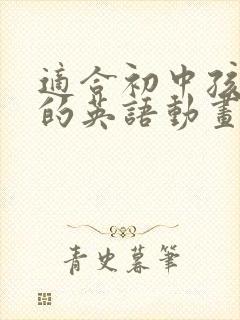 適合初中孩
的英語動畫
青史暮筆